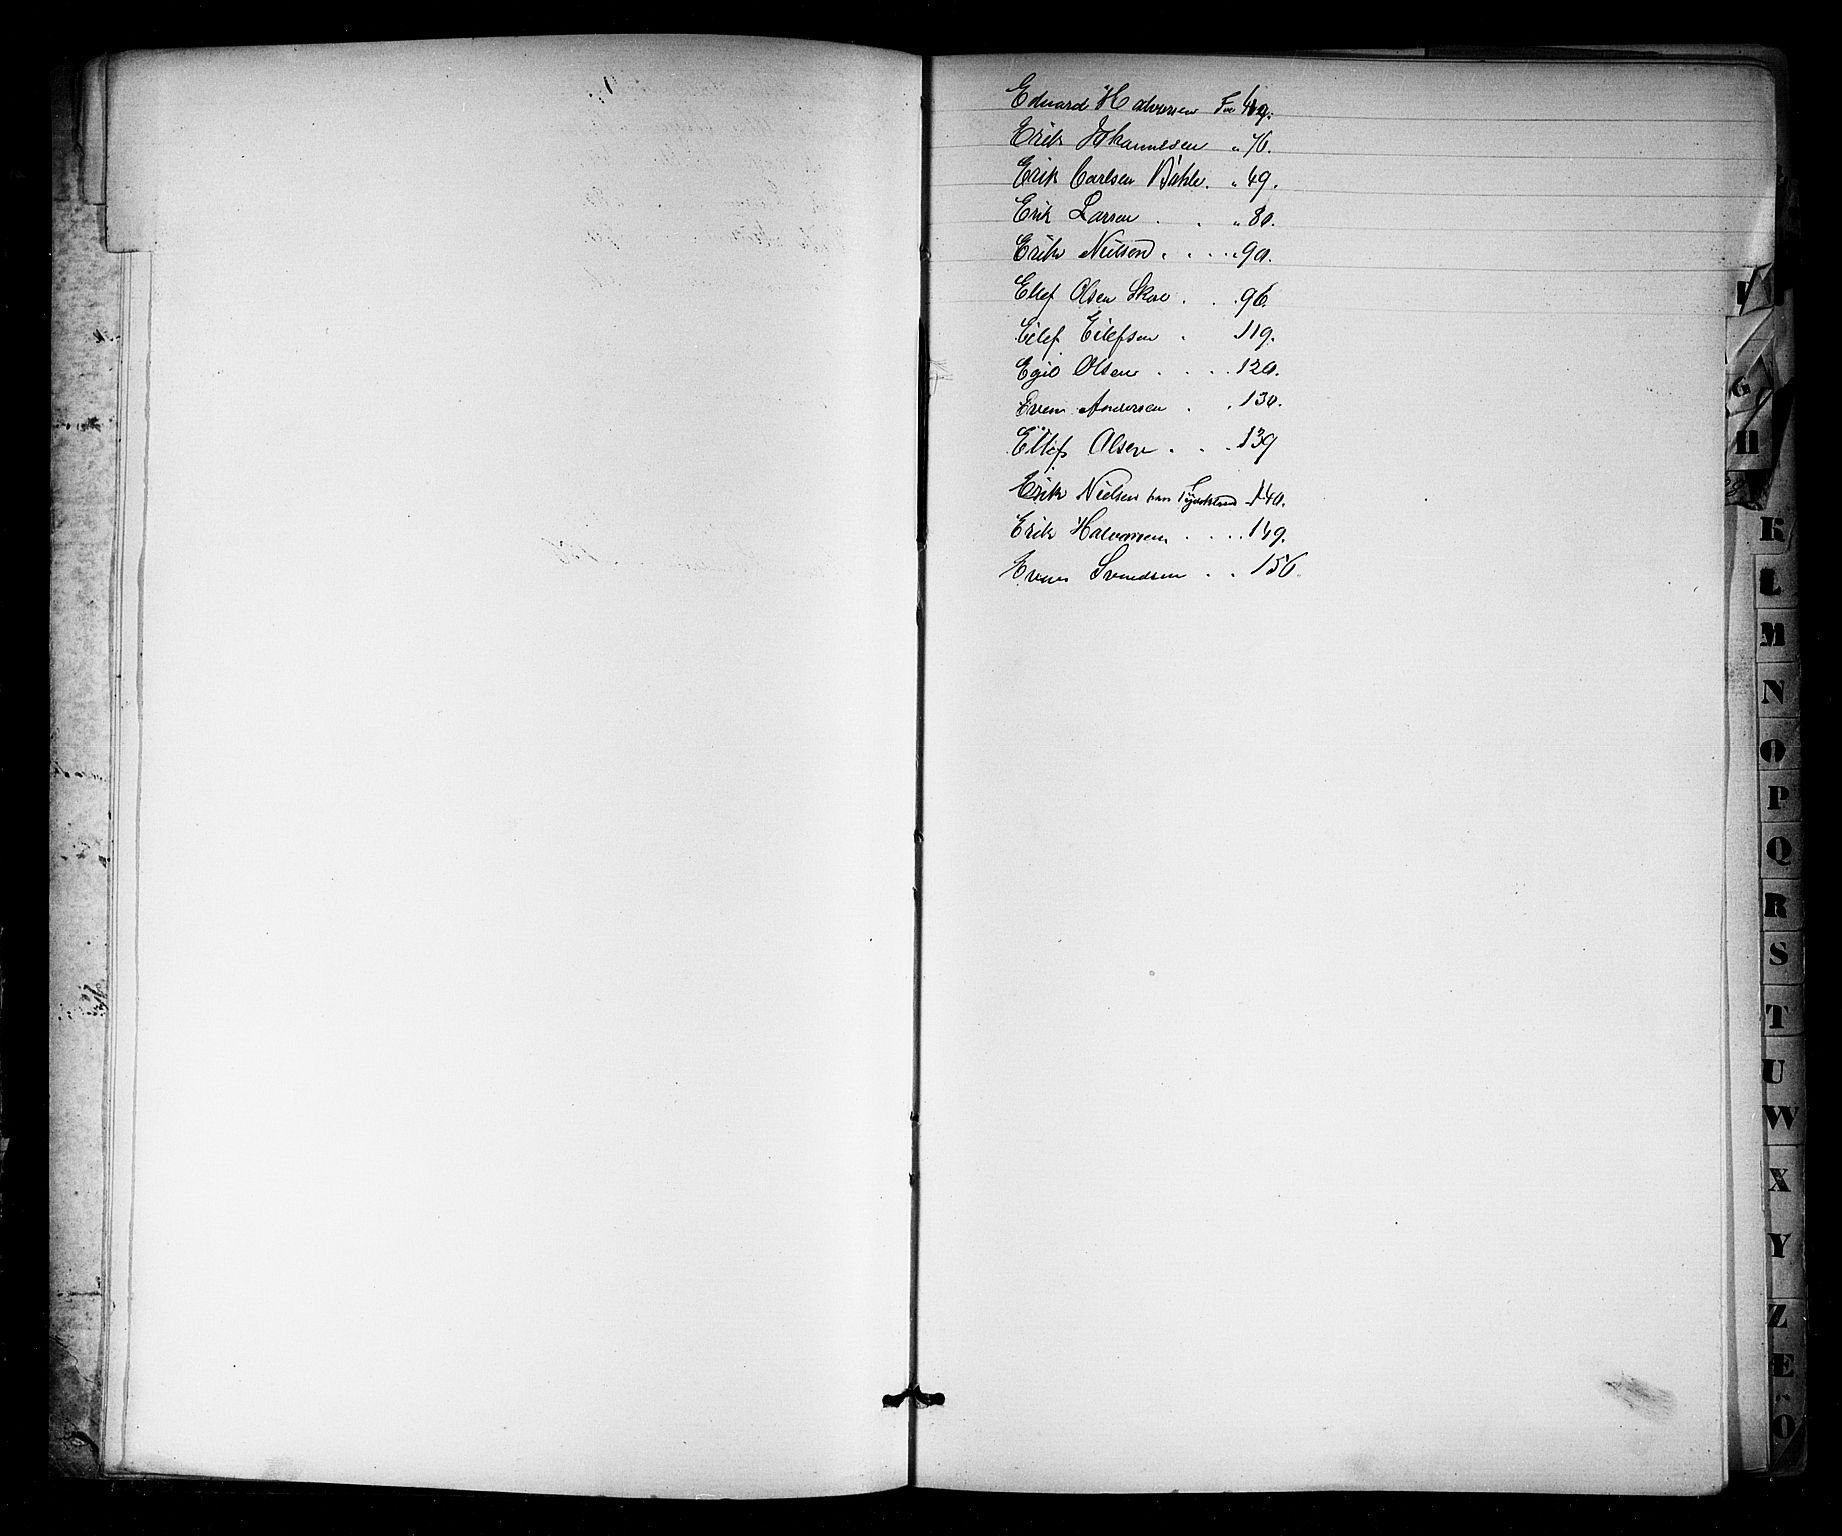 Eduard Halvorsen Fol 49.
Erik Johannessen „ 76.
Erik Carlsen Bakke. „ 49.
Erik Larsen . . „ 80.
Erik Nielsen . . . . 90.
Ellef Olsen Skoe . . . 96.
Eilef Eilefsen . 119.
Egil Olsen . . . . 120.
Even Andersen . . 130.
Ellef Olsen . . . 139
Erik Nielsen 140.
Erik Halvorsen . . . . 149.
Even Svendsen . . 156.
G
H
K
L
M
N
O
P
Q
R
S
T
U
W
X
Y
Z
Æ
Ö